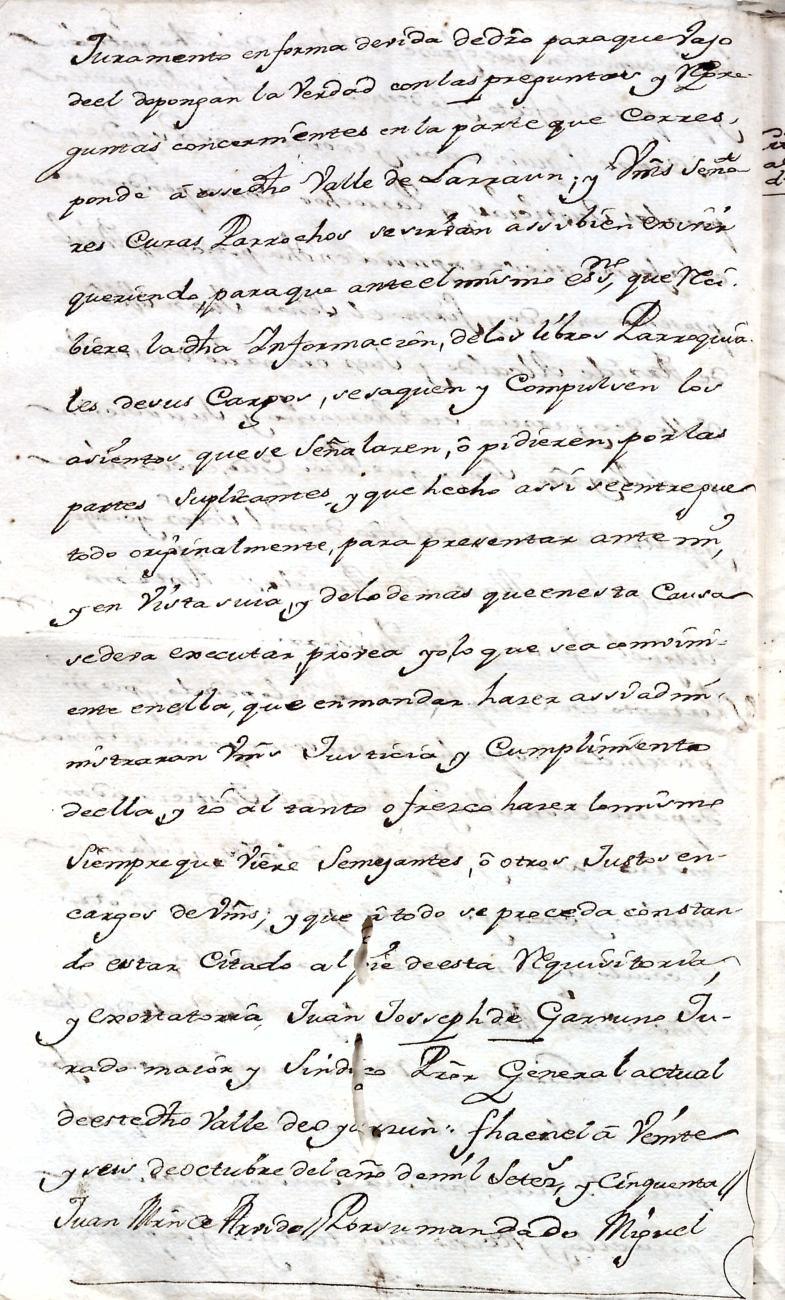 Juramento en forma devida de dro para que vajo
de el depongan la Verdad con las preguntas y Repre-
guntas concernientes en la parte que Corres-
ponde â esse dho Valle de Larraun; y Vms Seño
res Curas Parrochos se sirvan assi bien exivir
queriendo, para que ante el mismo essno, que Reci-
biere la dha Informacion, de los libros Parroquia-
les de sus Cargos, se saquen y Compulsen los
asientos que se señalaren, ô pidieren, por las
partes Suplicantes, y que hecho assi se entregue
todo originalmente, para presentar ante mi,
y en Vista suia, y de lo demas que en esta Causa
se deva executar, provea yo, lo que sea convini-
ente en ella, que en mandar hazer assi admi-
nistraran Vms Justicia, y Cumplimiento
de ella, y io al tanto ofrezco hazer lo mismo
Siempre que Viere Semejantes, ô otros Justos en-
cargos de Vms, y que â todo se proceda constan-
do estar Citado al pie de esta Requisitoria,
y exortatoria, Juan Josseph de Garmuno Ju-
rado maior y Sindico Pror General actual
de este dho Valle de oyarzun. fha en el â Veinte
y seis de octubre del año de mil Setezs, y Cinquenta //
Juan de // Por su mandado Miguel